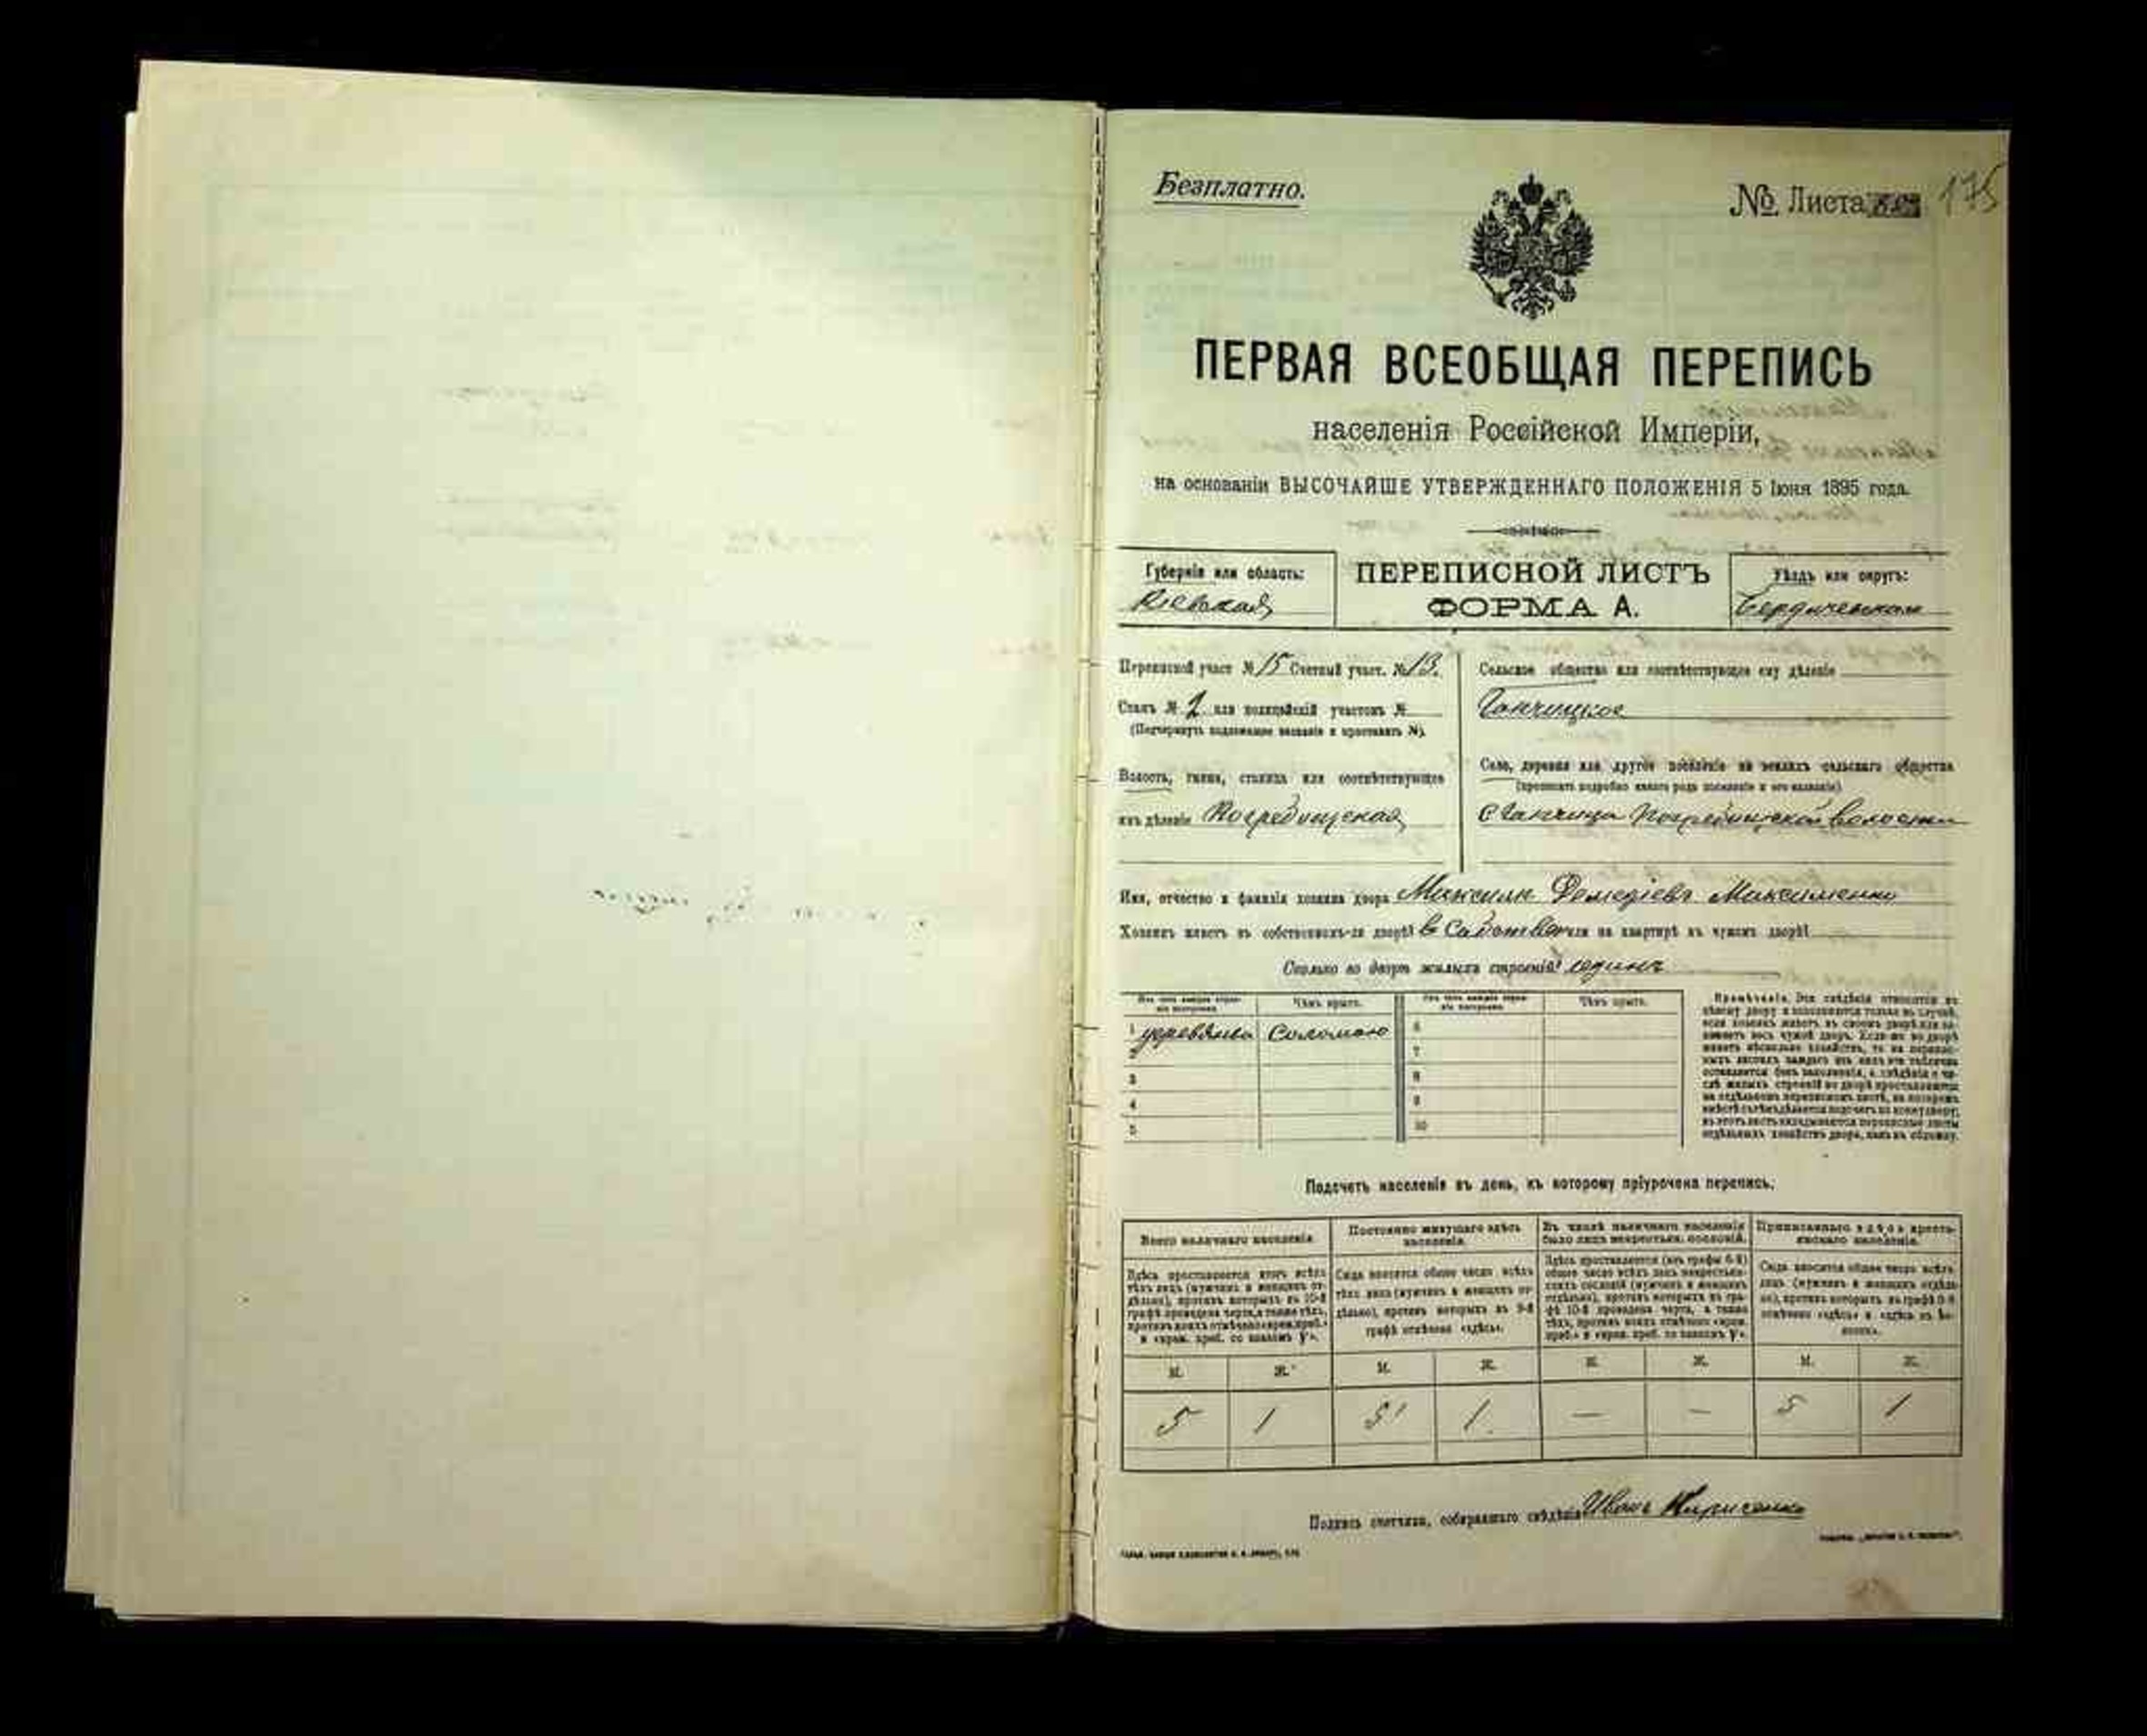 Безплатно.
№ Листа 175
ПЕРВАЯ ВСЕОБЩАЯ ПЕРЕПИСЬ
населенія Россійской Имперіи,
на основаніи ВЫСОЧАЙШЕ УТВЕРЖДЕННАГО ПОЛОЖЕНІЯ 5 Іюня 1895 года.
Губернія или область:
Кіевская
ПЕРЕПИСНОЙ ЛИСТЪ
ФОРМА А.
Уѣздъ или округъ:
Бердичевскій
Переписной участ. № 15 Счетный участ. № 13.
Станъ № 2 или полицейскій участокъ №
(Подчеркнуть подлежащее названіе и проставить №).
Волость, гмина, станица или соотвѣтствующее
имъ дѣленіе Погребищеская
Сельское общество или соотвѣтствующее ему дѣленіе
Село, деревня или другое поселеніе на земляхъ сельскаго общества
(прописать подробно какого рода поселеніе и его названіе)
Погребищеской волости
Имя, отчество и фамилія хозяина двора Максимъ Максименко
Хозяинъ живетъ въ собственномъ-ли дворѣ? или на квартирѣ въ чужомъ дворѣ?
Сколько во дворѣ жилыхъ строеній? одинъ
Чѣмъ крыто.
Чѣмъ крыто.
1 деревянно соломою 6
2 7
3 8
4 9
5 10
Примѣчаніе. Эти свѣдѣнія относятся къ
цѣлому двору и заполняются только въ случаѣ,
если хозяинъ живетъ въ своемъ дворѣ или за-
нимаетъ весь чужой дворъ. Если-же во дворѣ
имѣетъ нѣсколько хозяйствъ, то на перепис-
ныхъ листахъ каждаго изъ нихъ эта табличка
оставляется безъ заполненія, а свѣдѣнія о чи-
слѣ жилыхъ строеній во дворѣ проставляются
на отдѣльномъ переписномъ листѣ, на которомъ
вмѣстѣ съ тѣмъ дѣлается подсчетъ по всему двору;
въ этотъ листъ вкладываются переписные листы
отдѣльныхъ хозяйствъ двора, какъ въ обложку.
Подсчетъ населенія въ день, къ которому пріурочена перепись.
Всего наличнаго населенія
Постоянно живущаго здѣсь
населенія.
Въ числѣ наличнаго населенія
было лицъ некрестьян. сословій.
Приписаннаго здѣсь кресть-
янскаго населенія.
Здѣсь проставляется итогъ всѣхъ
тѣхъ лицъ (мужчинъ и женщинъ от-
дѣльно), противъ которыхъ въ 10-й
графѣ проведена черта, а также тѣхъ,
противъ коихъ отмѣчено «врем. преб.»
Сюда вносится общее число всѣхъ
тѣхъ лицъ (мужчинъ и женщинъ от-
дѣльно), противъ которыхъ въ 9-й
графѣ отмѣчено «здѣсь».
Здѣсь проставляется (изъ графы 6-й)
общее число всѣхъ лицъ некрестьян-
скихъ сословій (мужчинъ и женщинъ
отдѣльно), противъ которыхъ въ гра-
фѣ 10-й проведена черта, а также
Сюда вносится общее число всѣхъ
лицъ (мужчинъ и женщинъ отдѣль-
но), противъ которыхъ въ графѣ 8-й
отмѣчено «здѣсь» и «здѣсь въ во-
лости».
М. Ж. М. Ж. М. Ж. М. Ж.
5 1 5 1 — — 5 1
Подпись счетчика, собиравшаго свѣдѣнія Иванъ